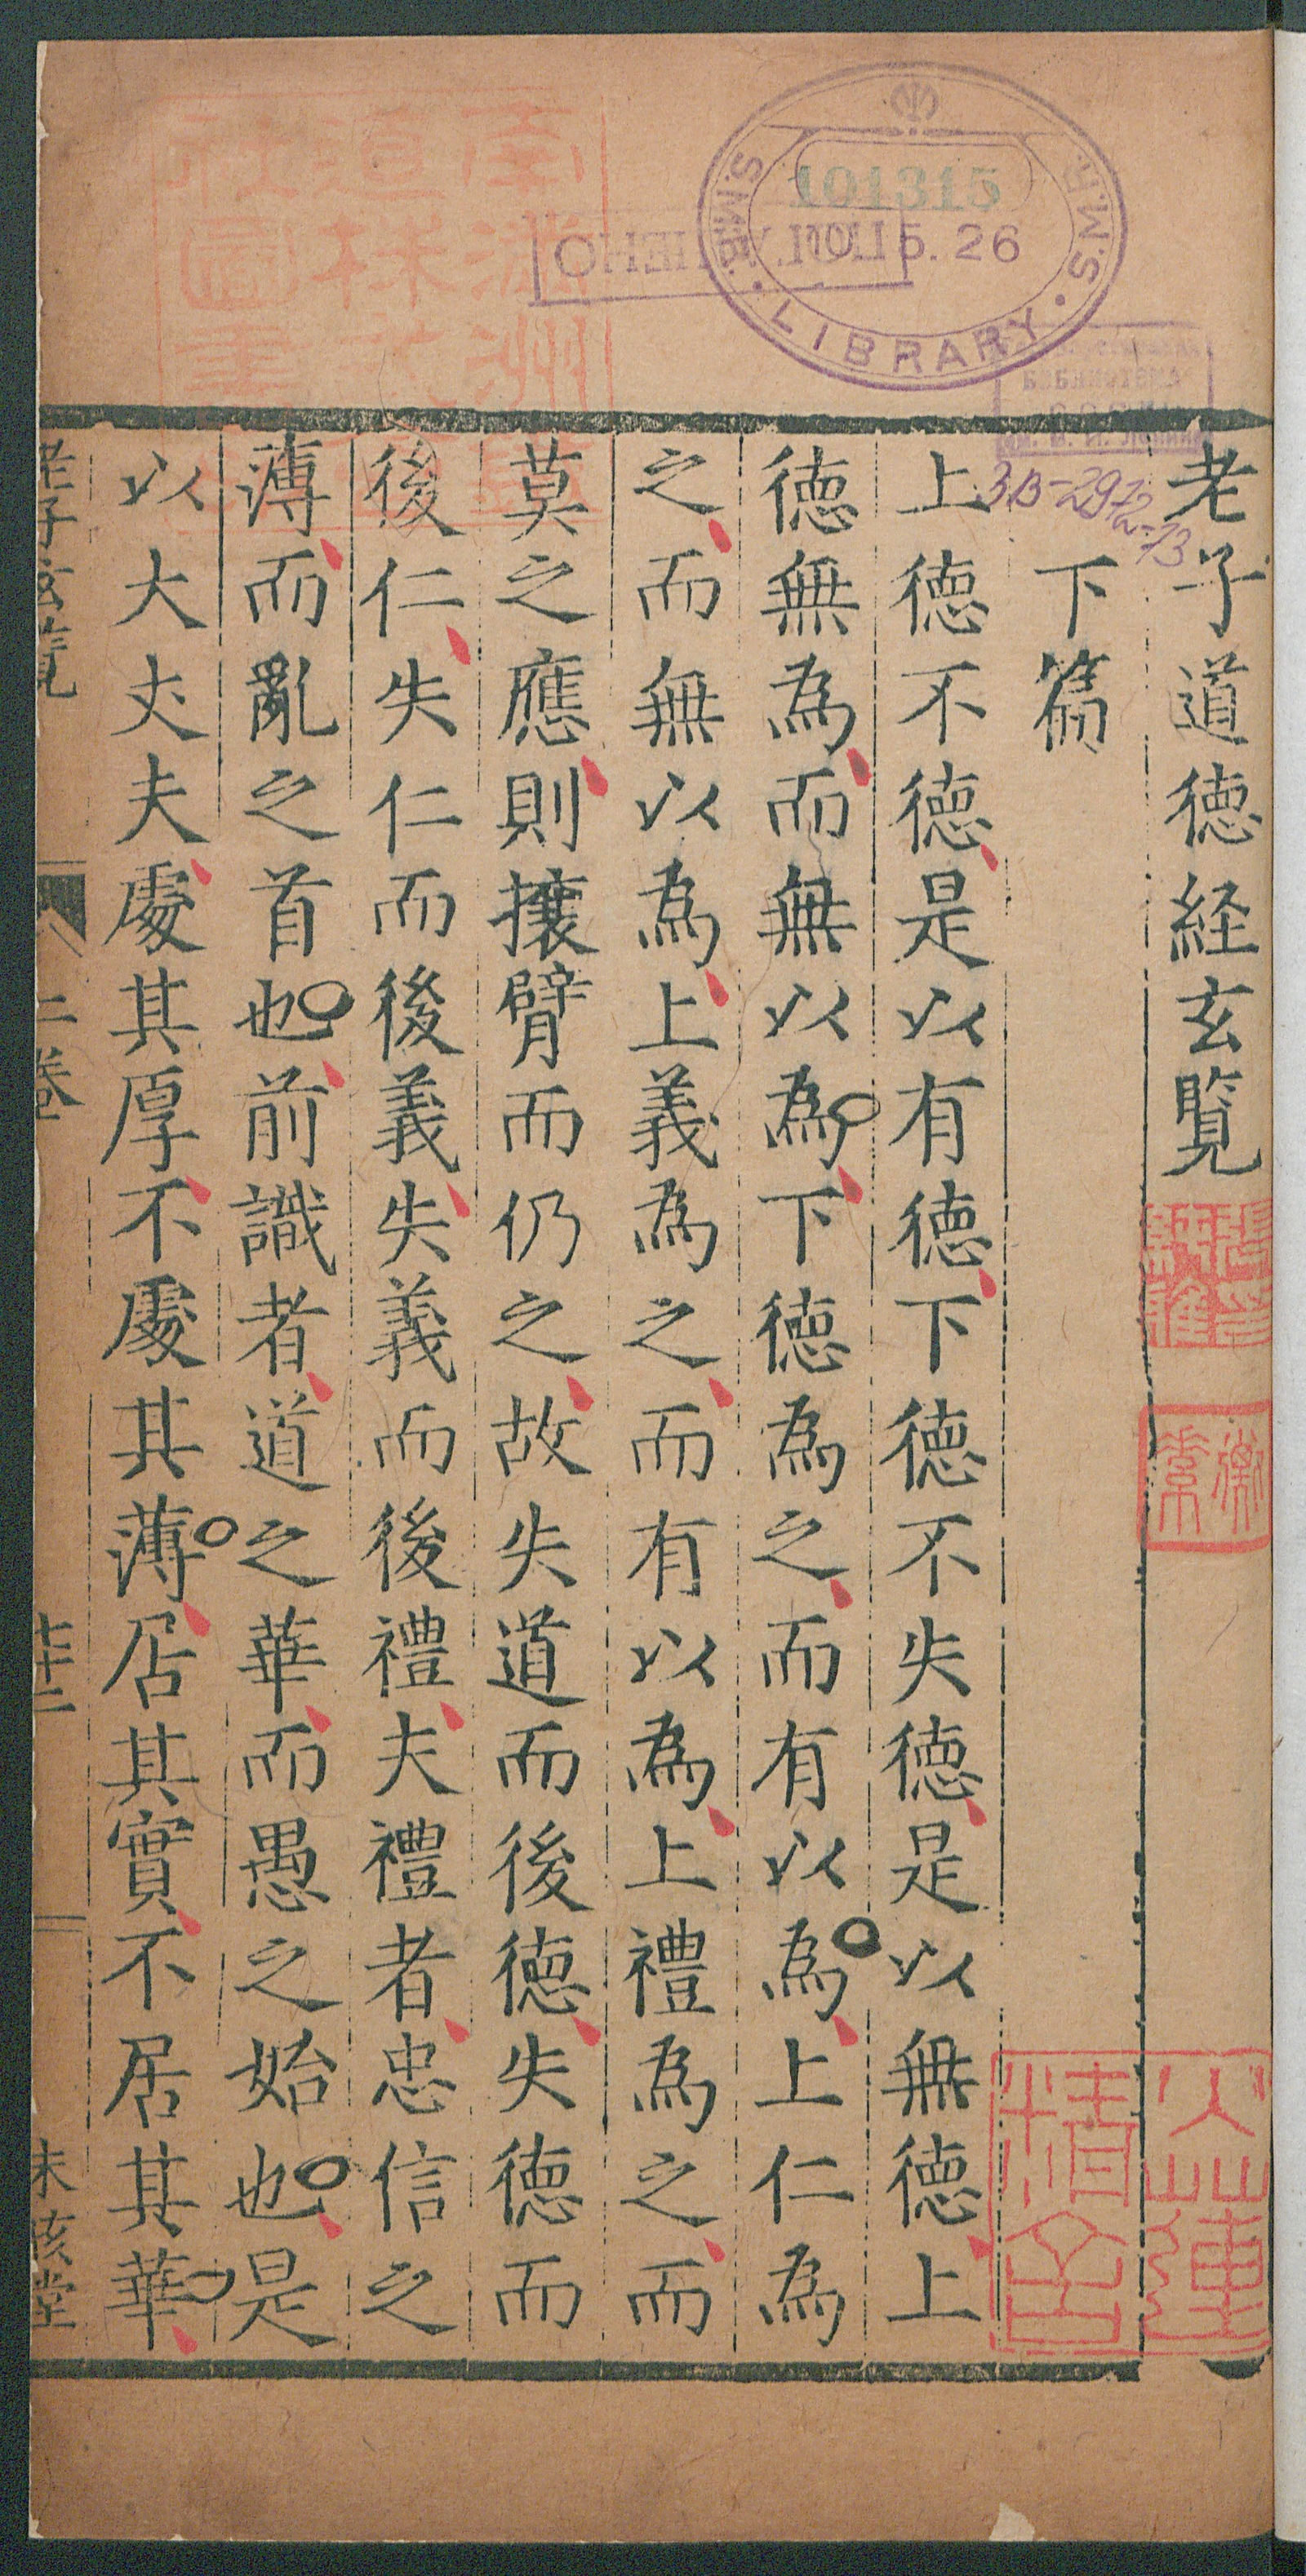 老子道德経玄覧
下篇
上德不德是以有德下德不失德是以無德上
德無為而無以為下德為之而有以為上仁為
之而無以為上義為之而有以為上禮為之而
莫之應則攘臂而仍之故失道而後德失德而
後仁失仁而後義失義而後禮夫禮者忠信之
薄而亂之首也前識者道之華而愚之始也是
以大丈夫處其厚不處其薄居其實不居其華
老子玄覧
二卷
未孩堂
101315
10. 5. 26
S.M.R. LIBRARY S.M.R.
3B-2972-13